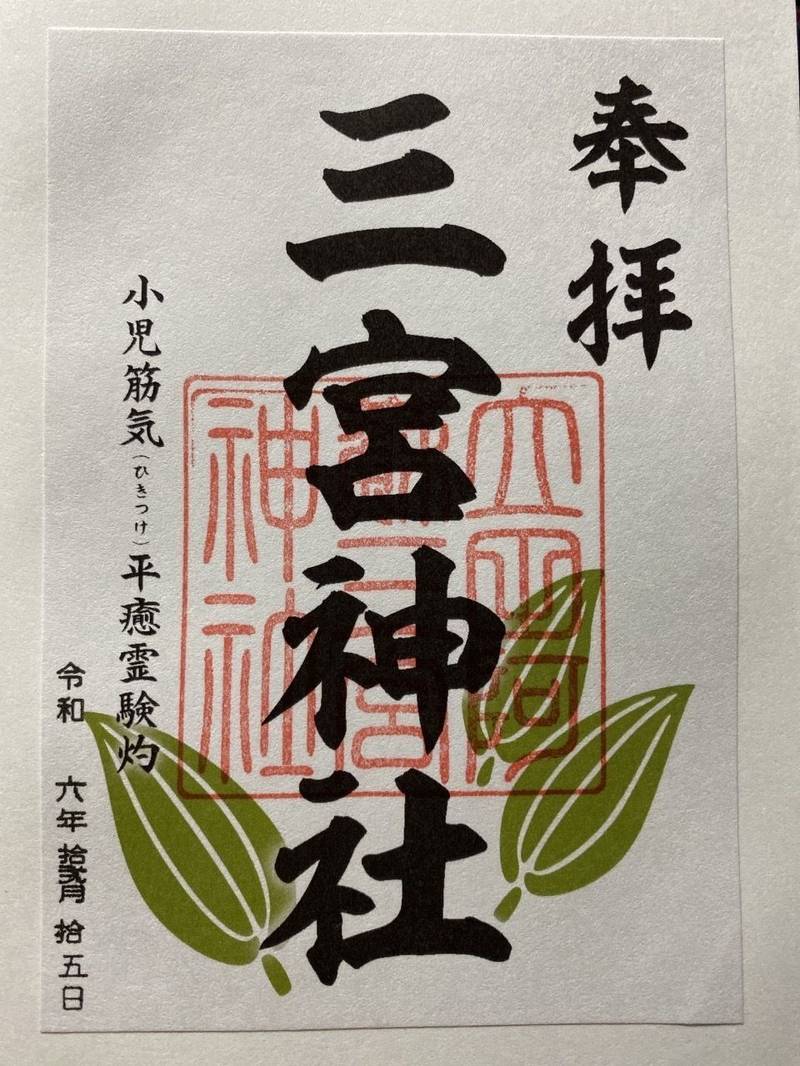 奉拝
三宮神社
三宮
神社
小児筋気(ひきつけ)平癒霊験灼
令和 六年 拾貳月 拾五日